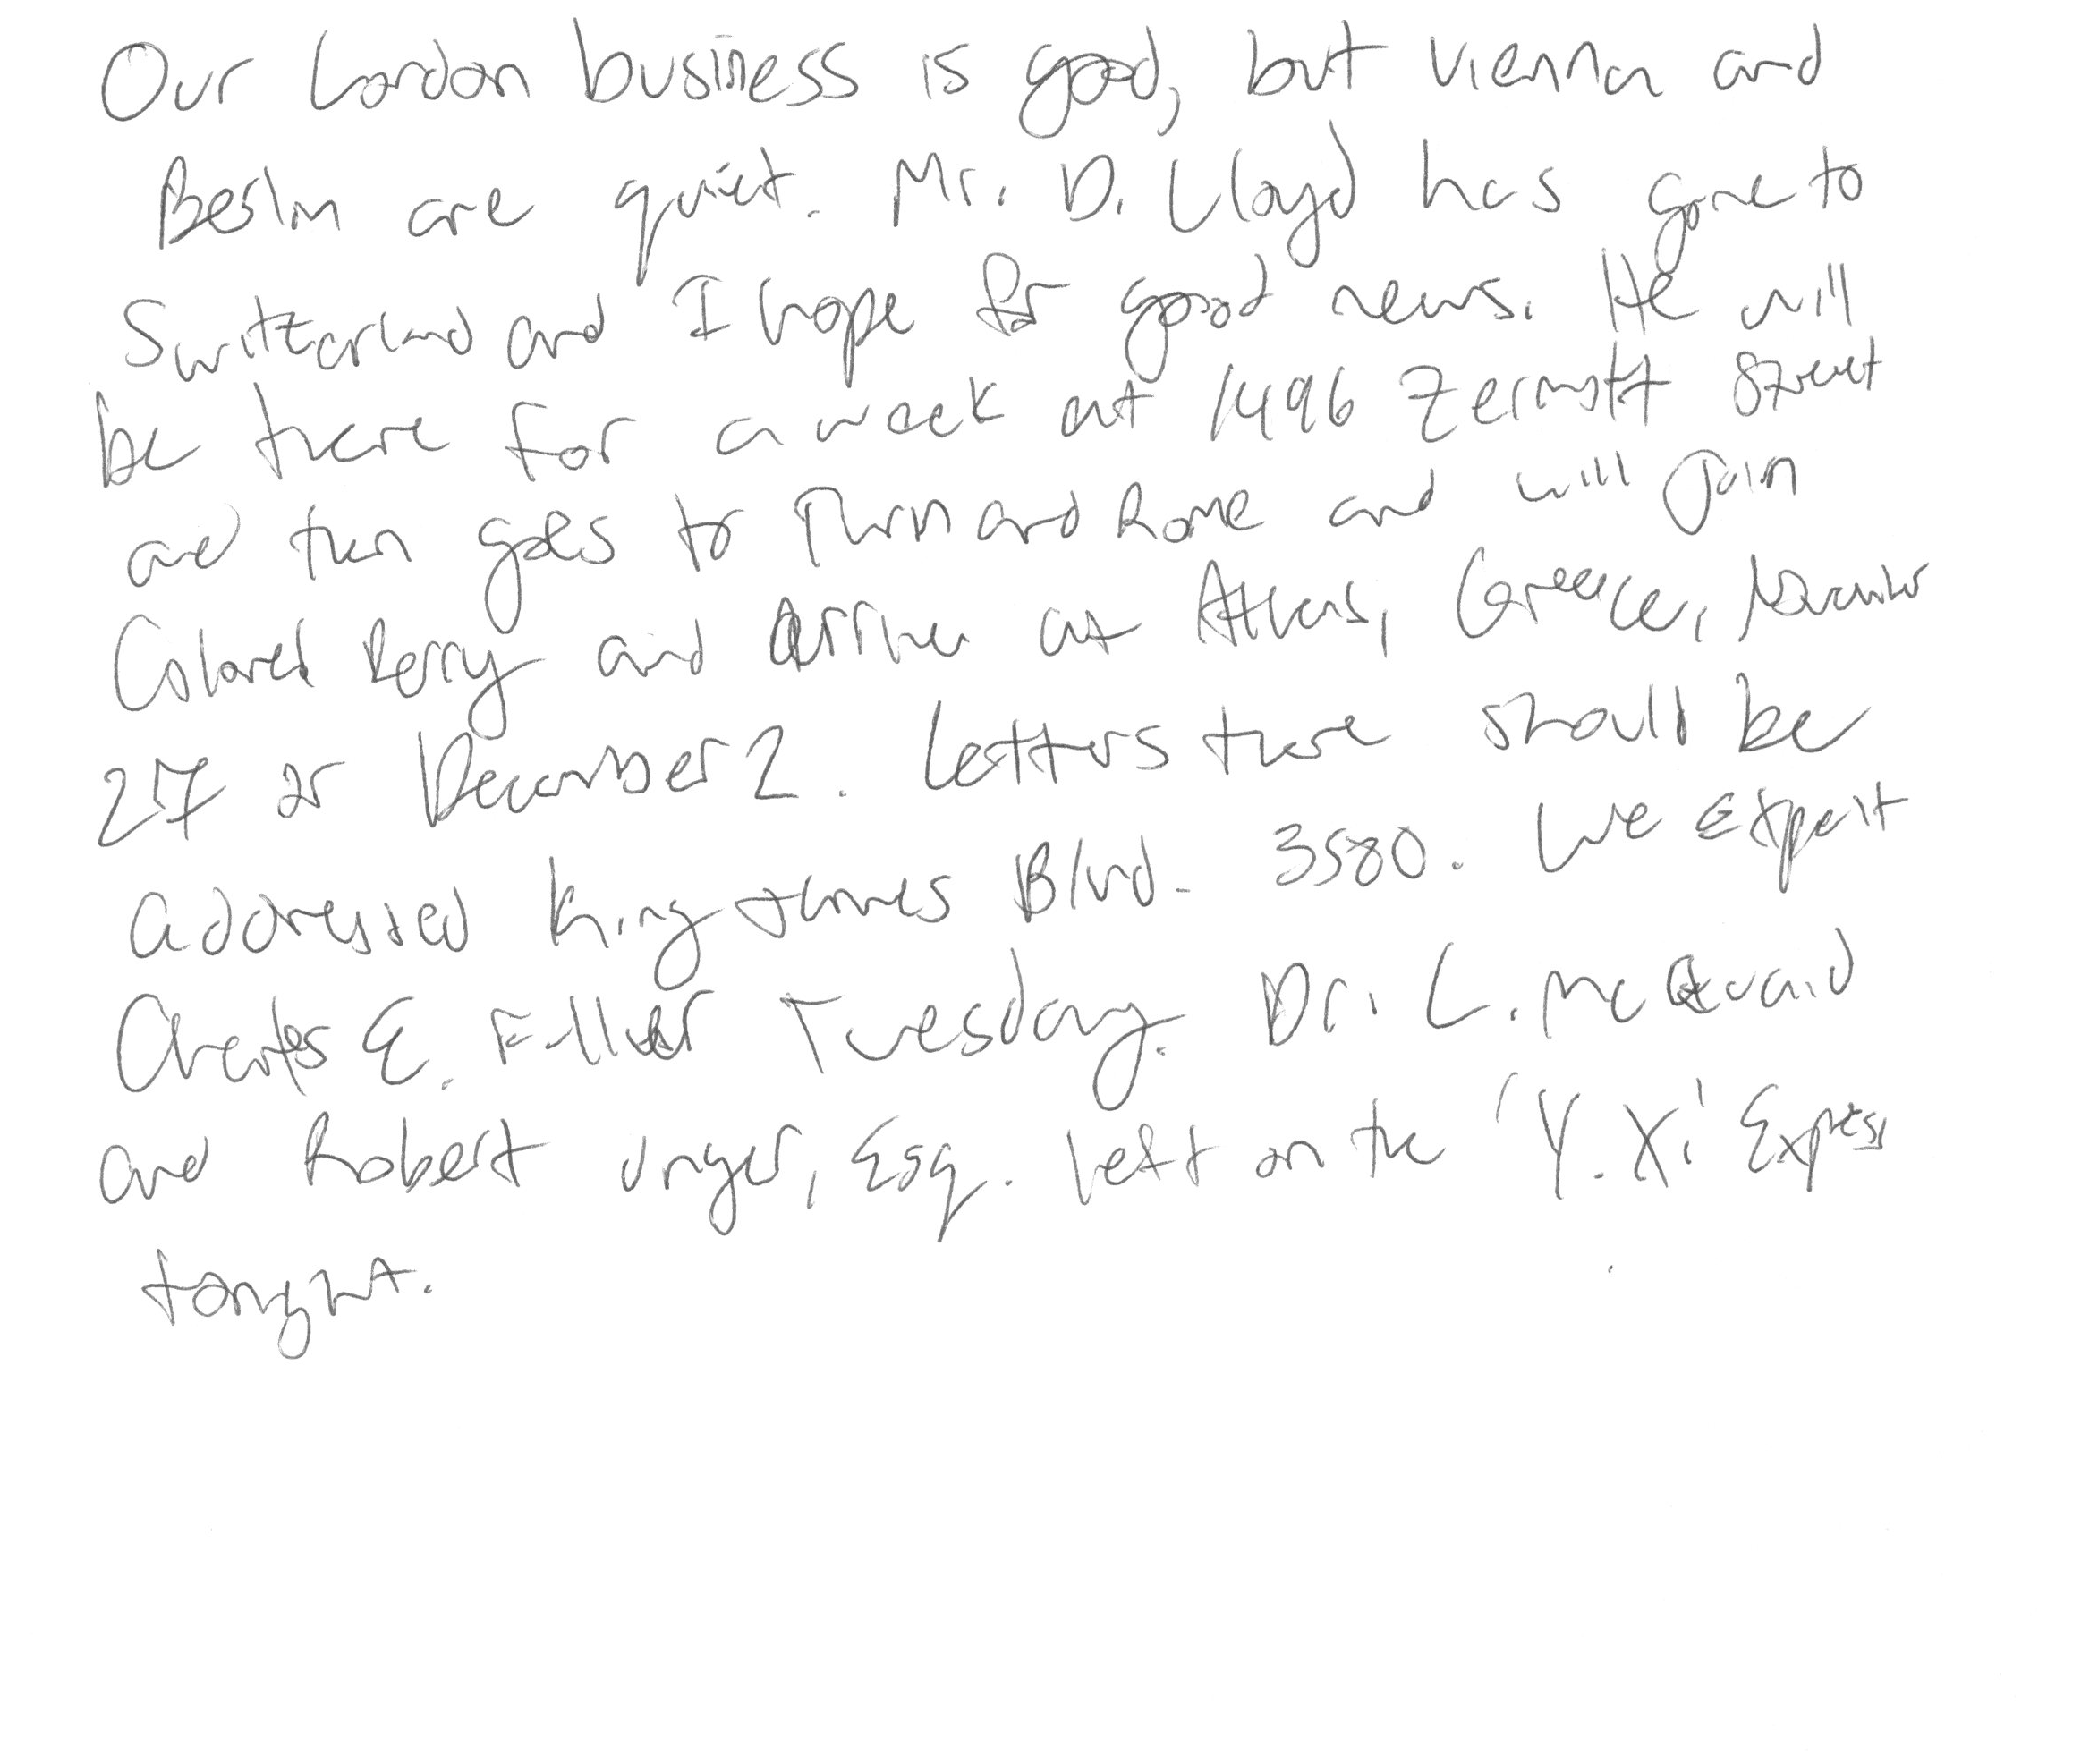 Our London business is good, but Vienna and
Berlin are quiet. Mr. D. Lloyd has gone to
Switzerland and I hope for good news. He will
be there for a week at 1496 Zermott Street
and then goes to Turin and Rome and will join
Colonel Perry and arrive at Athens, Greece, November
27 or December 2. Letters there should be
addressed King James Blvd. 3580. We expect
Charles E. Fuller Tuesday. Dr. L. McQuaid
and Robert Unger, Esq. left on the 'Y.X.' Express
tonight.